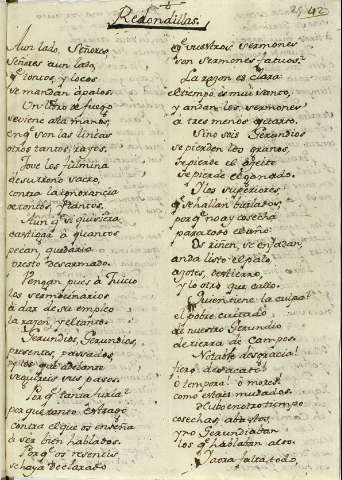 Redondillas.
42
Aun lado, Señores,
Señores aun lado,
q͏̃ tontos, y locos
se mandan à palos.
Un libro de fuego
se viene à la mano,
en q͏̃ son las lineas
otros tantos rayos.
Jove los fulmina
de su trono sacro,
contra la ignorancia
de tontos,
Aun q͏̃ si quisiera
castigar à quantos
pecan, quedaria
presto desarmado.
Vengan pues à Juicio
los sermonarios
à dar de su empleo
la razon, y el tanto.
Gerundios, Gerundios,
presentes, passados,
y los que adelante
seguireis sus pasos.
Porq͏̃ tanta furia?
por que tanto estrago
contra el que os enseña
à ser bien hablados.
Porq͏̃ os resentis
se haya declarado
q͏̃ vuestros sermones
son sermones fatuos?
La razon es clara:
el tiempo es mui santo,
y andan los sermones
à tres menos quarto.
Si no sois Gerundios
se pierden los granos,
se pierde el
se pierde el ganado.
Y los superiores
q͏̃ se hallan burlados,
por q͏̃ no ay cosecha
para todo el año:
Os riñen, se enfadan,
anda listo el palo
azotes, destierro,
y lo otro que callo.
Quien tiene la culpa?
el pobre cuitado
de nuestro Gerundio
de tierra de Campos.
Notable desgracia!
fiero desacato!
ò tempora! ò mores!
como estais mudados.
Hubo en otro tiempo
cosechas,
y no Gerundiaban
los q͏̃ hablaban alto.
Y aora falta todo,